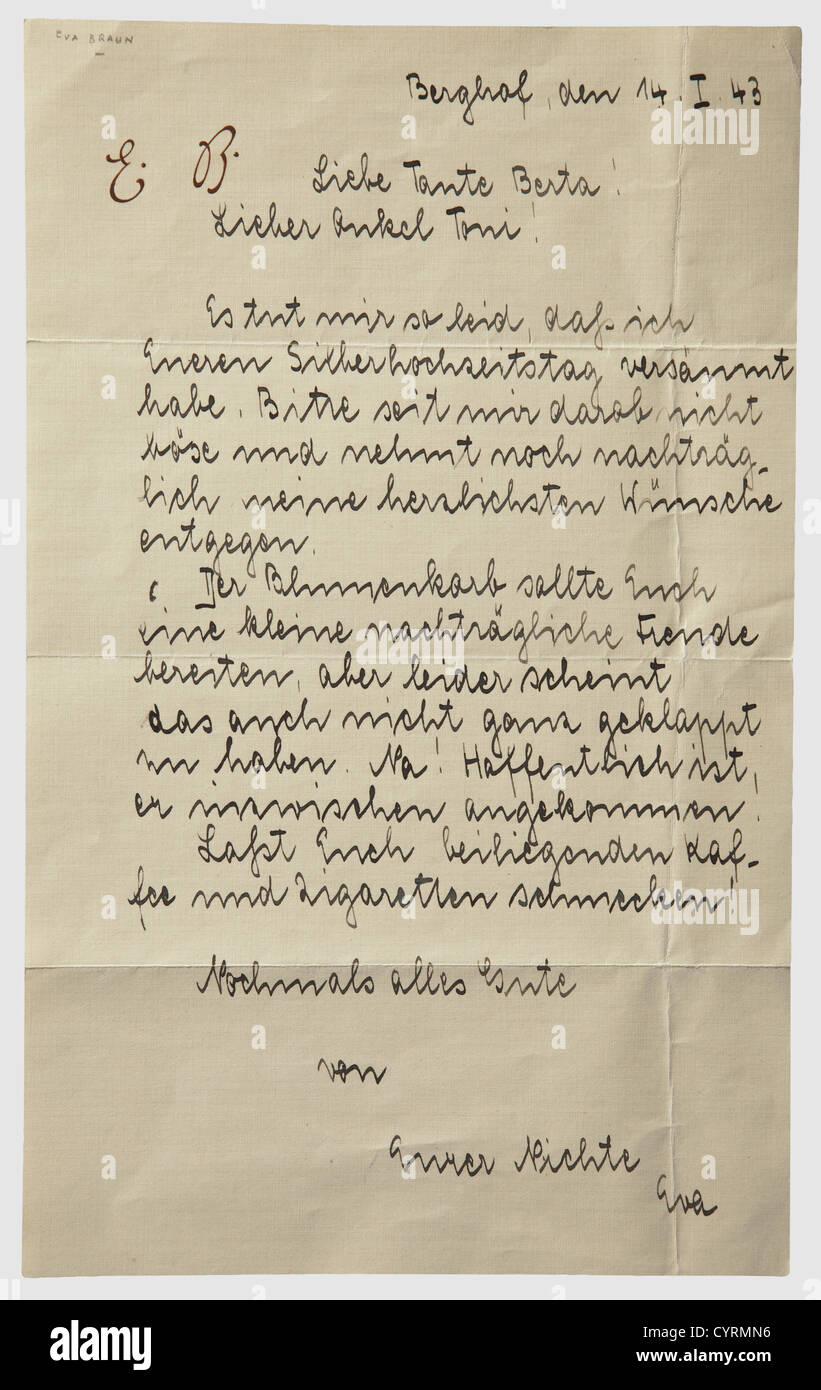 EVA BRAUN
Berghof, den 14. I. 43
E. B.
Liebe Tante Berta!
Lieber Onkel Toni!
Es tut mir so leid, daß ich
Eueren Silberhochzeitstag versäumt
habe. Bitte seit mir darob nicht
böse und nehmt noch nachträg-
lich meine herzlichsten Wünsche
entgegen.
Der Blumenkorb sollte Euch
eine kleine nachträgliche Freude
bereiten, aber leider scheint
das auch nicht ganz geklappt
zu haben. Na! Hoffentlich ist
er inzwischen angekommen.
Laßt Euch beiliegenden Kaf-
fee und Zigaretten schmecken!
Nochmals alles Gute
von
Eurer Nichte
Eva
alamy
Image ID: CYRMN6
www.alamy.com